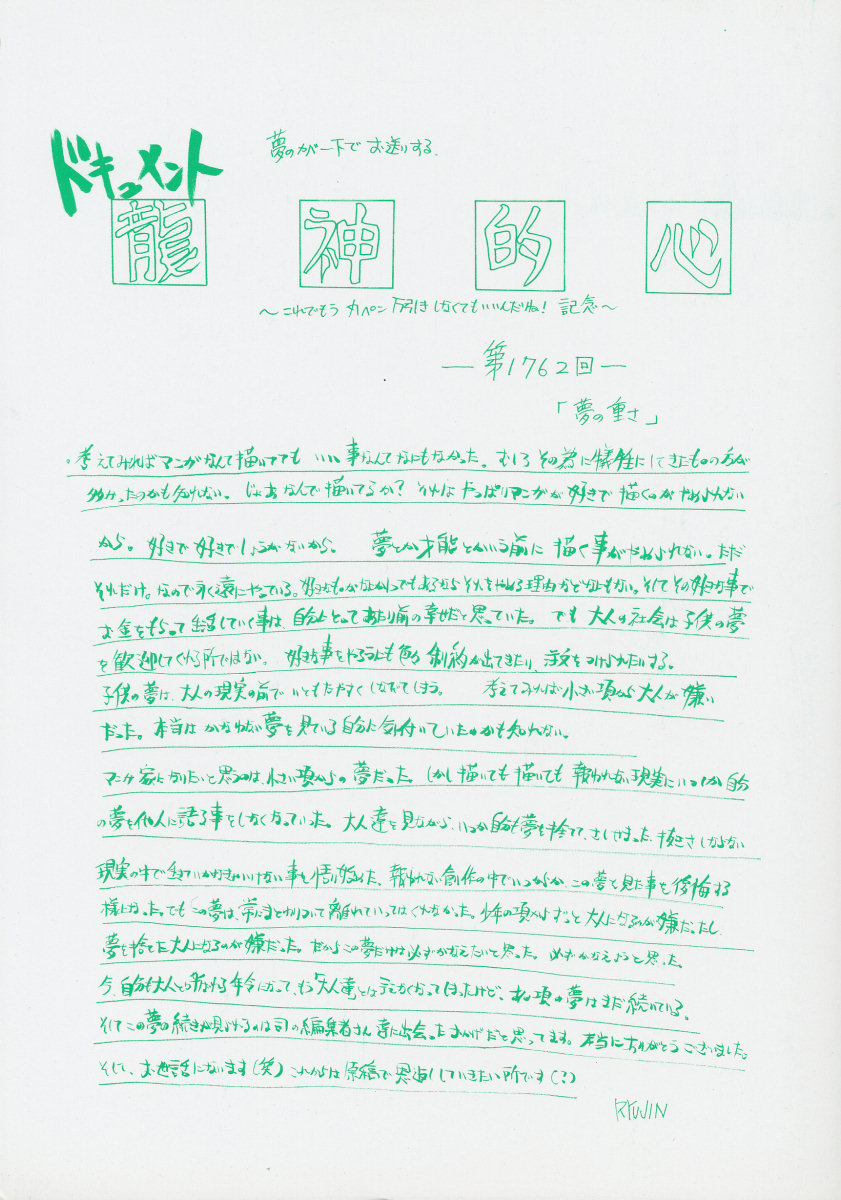 夢のカバー下でお送りする
ドキュメント
龍神的心
～これでもう丸ペン万引きしなくてもいいんだね!記念～
―第1762回―
「夢の重さ」
。考えてみればマンガなんて描いてても いい事なんてなにもなかった。むしろその為に犠牲にしてきたものの方が
多かったのかも知れない。じゃあなんで描いてるか?それはやっぱりマンガが好きで描くのがやめられない
から。好きで好きでしょうがないから。 夢とか才能とかいう前に 描く事がやめられない。ただ
それだけ。なので永遠にやっている。好きなものがなにかひとつでもあるならそれをやめる理由などなにもない。そしてその好きな事で
お金をもらって生活していく事は、自分にとってあたり前の幸せだと思っていた。でも 大人の社会は子供の夢
を歓迎してくれる所ではない。好きな事をやるにも色々制約が出てきたり、注文をつけられたりする。
子供の夢は、大人の現実の前でいともたやすくしなびてしまう。 考えてみれば小さい頃から大人が嫌い
だった。本当はかなわない夢を見ている自分に気付いていたのかも知れない。
マンガ家になりたいと思うのは、小さい頃からの夢だった。しかし描いても描いても 報われない現実にいつしか自分
の夢を他人に語る事をしなくなっていった。大人達を見ながら、いつか自分も夢を捨て、
現実の中で生きていかなきゃいけない事を悟り始めた、報われない創作の中でいつからか、この夢を見た事を後悔する
様になった。でもこの夢は、常にまとわりついて離れていってはくれなかった。少年の頃からずっと大人になるのが嫌だったし、
夢を捨てた大人になるのが嫌だった。だからこの夢だけは必ずかなえたいと思った。必ずかなえようと思った。
今、自分も大人と呼ばれる年令になって、もう「大人達」とは言えなくなってしまったけど、あの頃の夢はまだ続いている。
そしてこの夢の続きが見られるのは司の編集者さん達に出会ったおかげだと思ってます。本当にありがとうございました。
そして、お世話になります(笑) これからは原稿で恩返ししていきたい所です(?)
RYUJIN